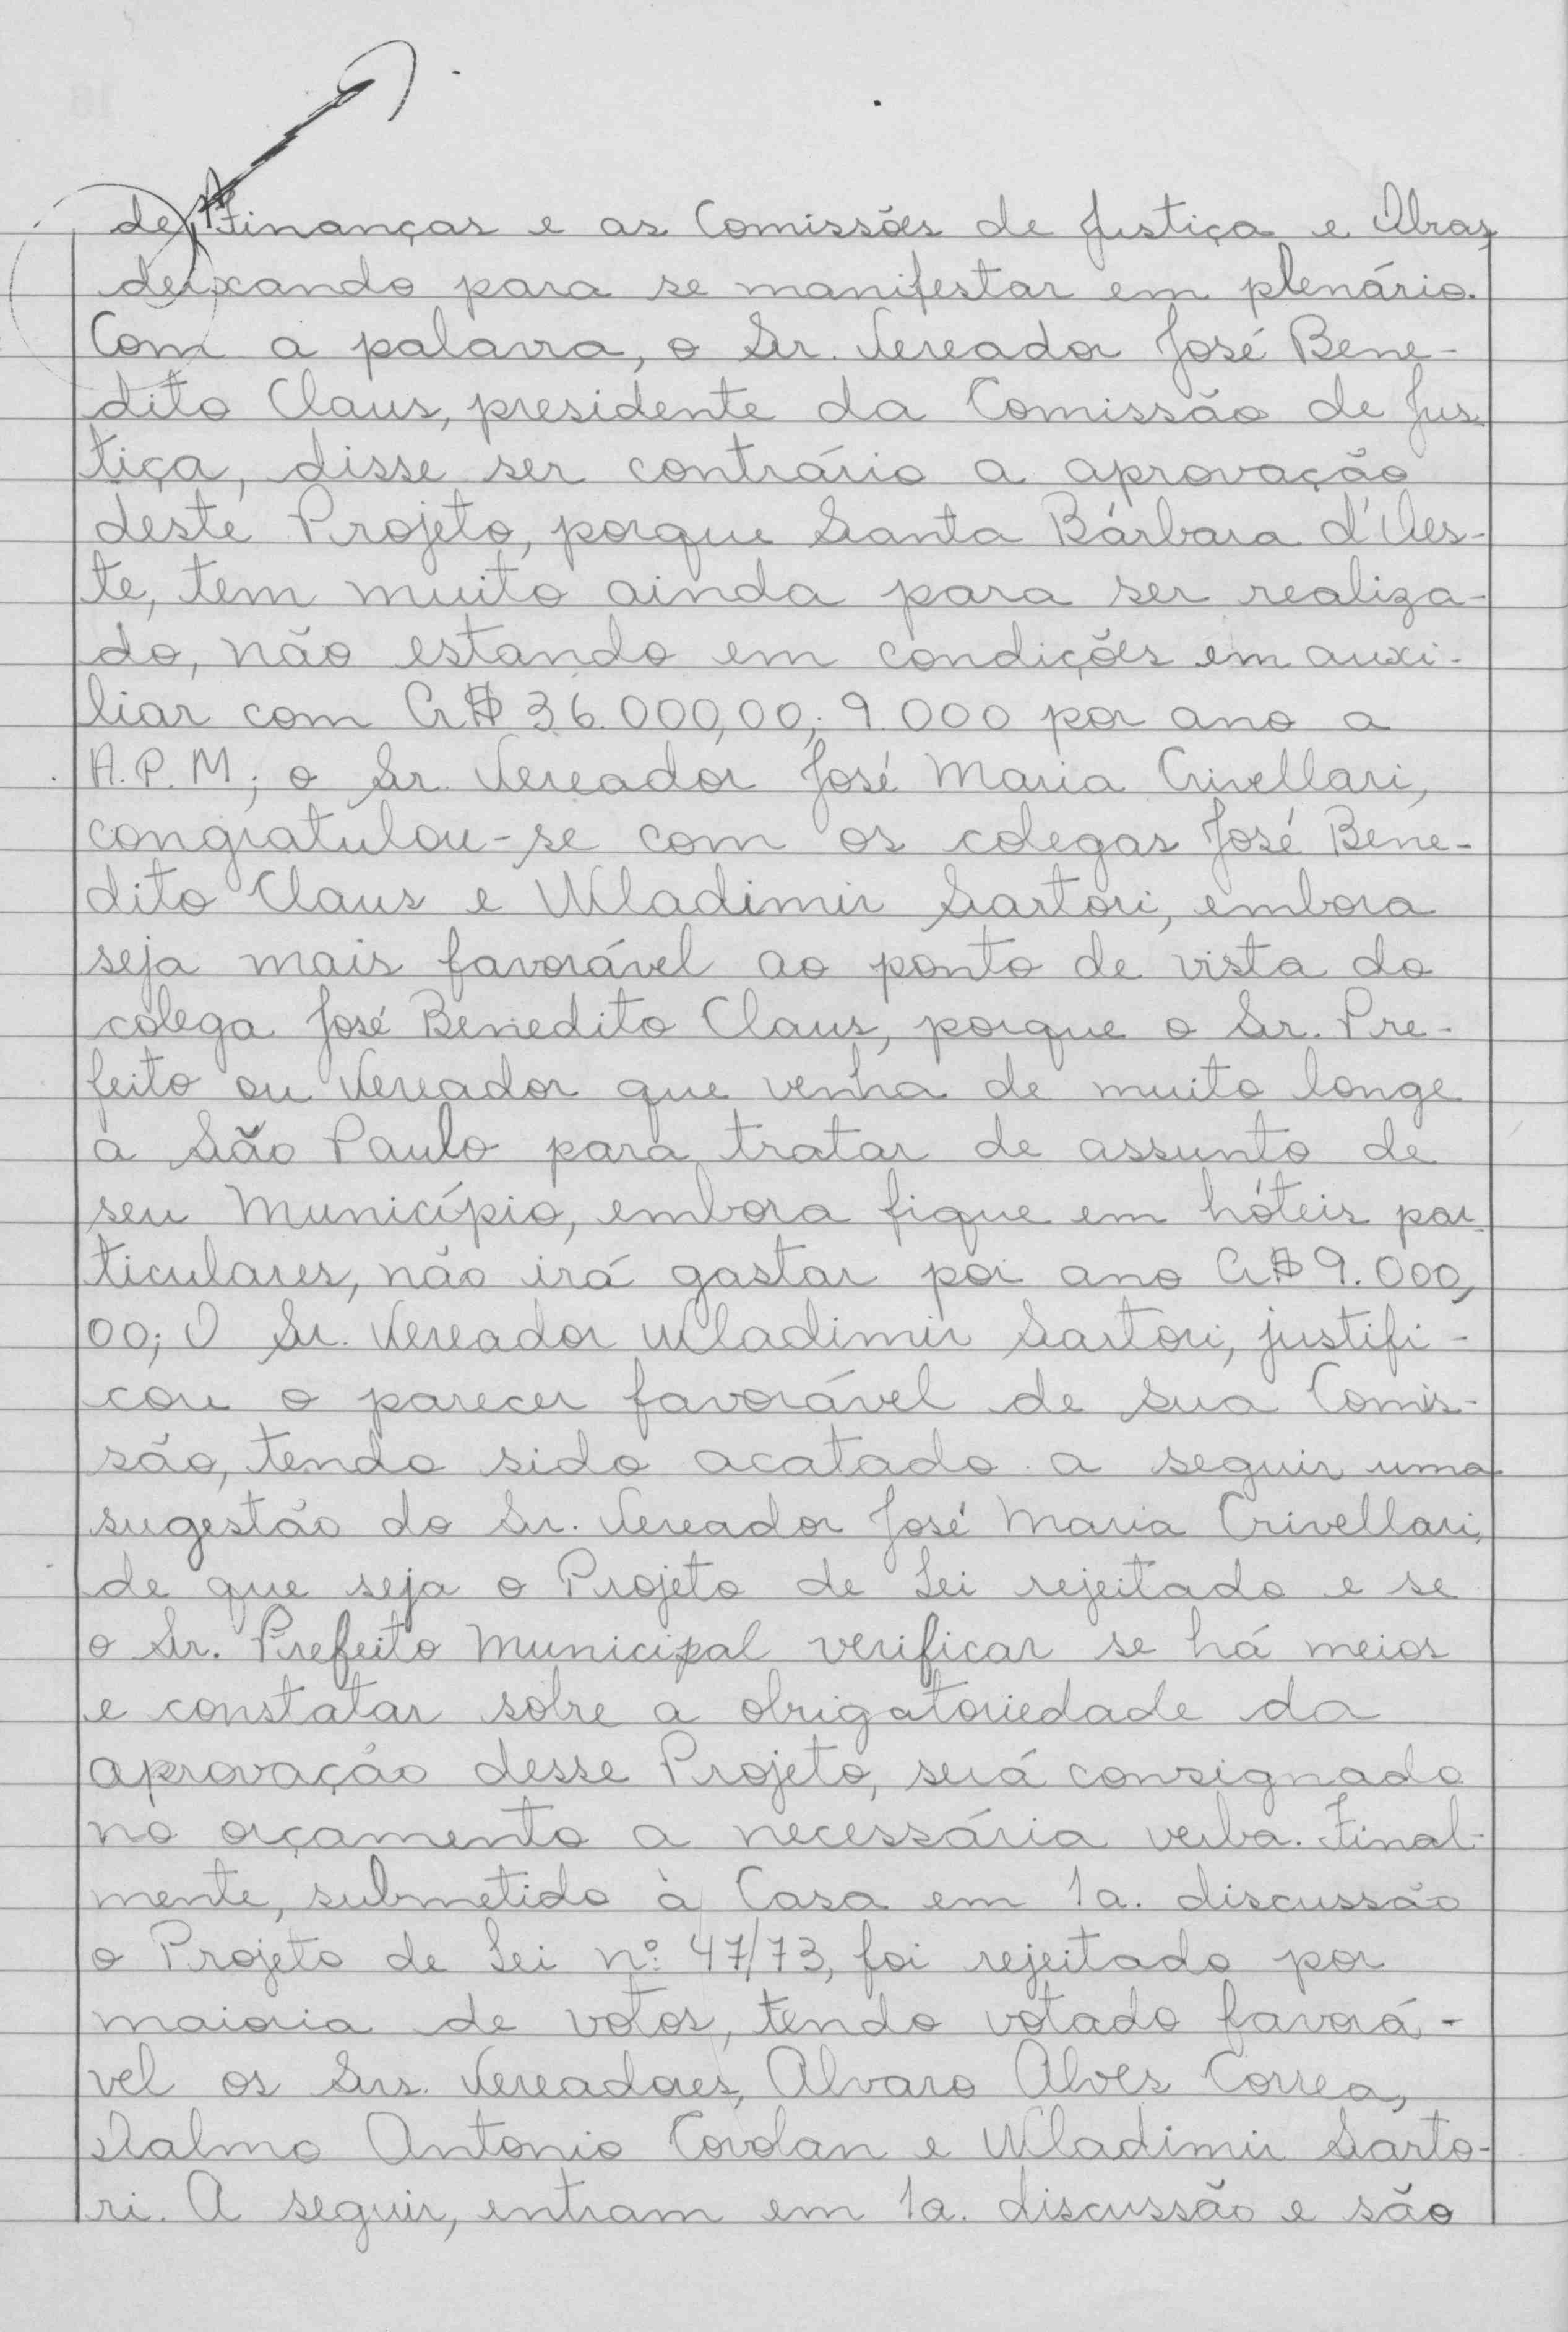 de Finanças e as Comissões de Justiça e Obras,
deixando para se manifestar em plenário.
Com a palavra, o Sr. Vereador José Bene-
dito Claus, presidente da Comissão de Jus-
tiça, disse ser contrário a aprovação
deste Projeto, porque Santa Bárbara d'Oes-
te, tem muito ainda para ser realiza-
do, não estando em condições em auxi-
liar com Cr$ 36.000,00, 9.000 por ano a
A.P.M; o Sr. Vereador José Maria Crivellari,
congratulou-se com os colegas José Bene-
dito Claus e Wladimir Sartori, embora
seja mais favorável ao ponto de vista do
colega José Benedito Claus, porque o Sr. Pre-
feito ou Vereador que venha de muito longe
a São Paulo para tratar de assunto de
seu Município, embora fique em hóteis par-
ticulares, não irá gastar por ano Cr$ 9.000,
00; O Sr. Vereador Wladimir Sartori, justifi-
cou o parecer favorável de sua Comis-
são, tendo sido acatado a seguir uma
sugestão do Sr. Vereador José Maria Crivellari,
de que seja o Projeto de Lei rejeitado e se
o Sr. Prefeito Municipal verificar se há meios
e constatar sobre a obrigatoriedade da
aprovação desse Projeto, será consignado
no orçamento a necessária verba. Final-
mente, submetido à Casa em 1a. discussão
o Projeto de Lei nº 47/73, foi rejeitado por
maioria de votos, tendo votado favorá-
vel os Srs. Vereadores, Alvaro Alves Correa,
Dalmo Antonio Covolan e Wladimir Sarto-
ri. A seguir, entram em 1a. discussão e são